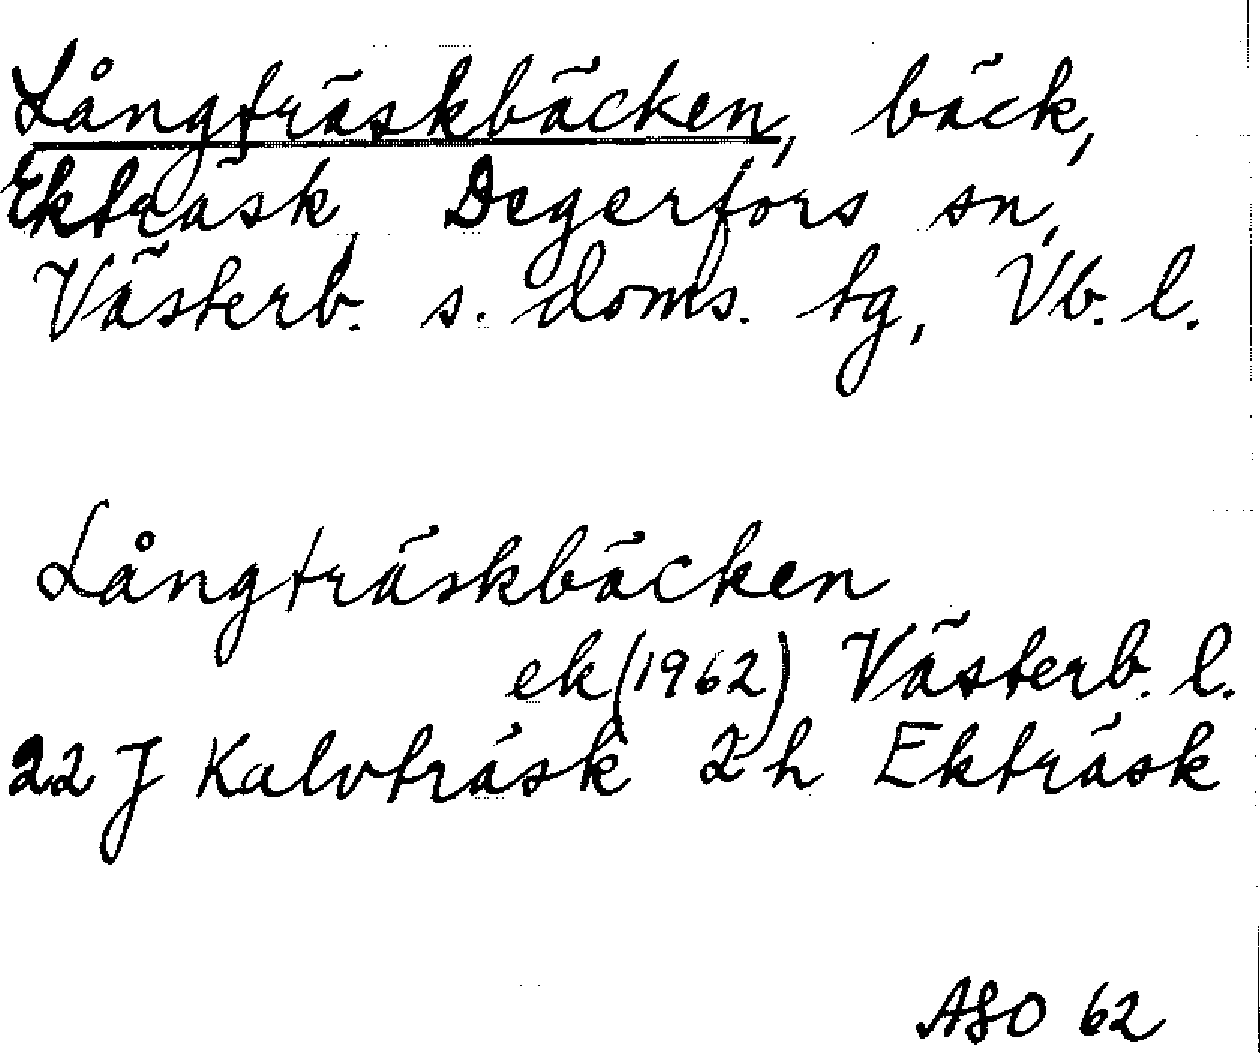 Långträskbäcken, bäck,
Ekträsk, Degerfors sn,
Västerb. s. doms. tg, Vb. l.
Långträskbäcken
ek (1962) Västerb. l.
22 J Kalvträsk 2 h Ekträsk
ASO 62